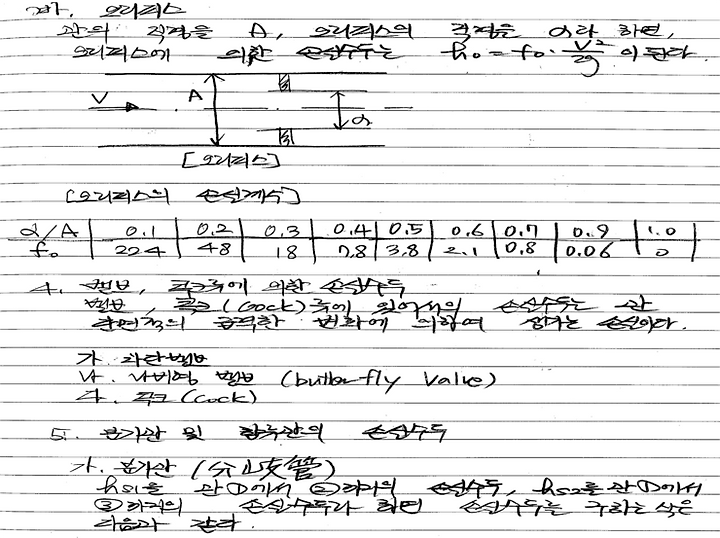 라. 오리피스
관의 직경을 A, 오리피스의 직경을 α라 하면,
오리피스에 의한 손실수두는 ho = fo · V²/2g 이 된다.
V A α
[오리피스]
[오리피스의 손실계수]
α/A 0.1 0.2 0.3 0.4 0.5 0.6 0.7 0.9 1.0
fo 224 48 18 7.8 3.8 2.1 0.8 0.06 0
4. 밸브, 콕크 등에 의한 손실수두
밸브, 콕크(cock) 등에 있어서의 손실수두는 관
단면적의 급격한 변화에 의하여 생기는 손실이다.
가. 차단밸브
나. 나비형 밸브 (butterfly Valve)
다. 콕크(cock)
5. 분기관 및 합류관의 손실수두
가. 분기관 (分岐管)
hs1을 관①에서 ②까지의 손실수두, hs2를 관①에서
③까지의 손실수두라 하면 손실수두를 구하는 식은
다음과 같다.